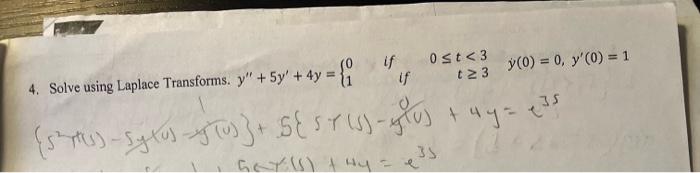 4. Solve using Laplace Transforms. y'' + 5y' + 4y = {0 if 0 ≤ t < 3
{1 if t ≥ 3 y(0) = 0, y'(0) = 1
1 0
{s²Y(s) - sy(0) - y'(0)} + 5{sY(s) - y(0)} + 4y = e^3s
Y(s) + 4y = e^3s